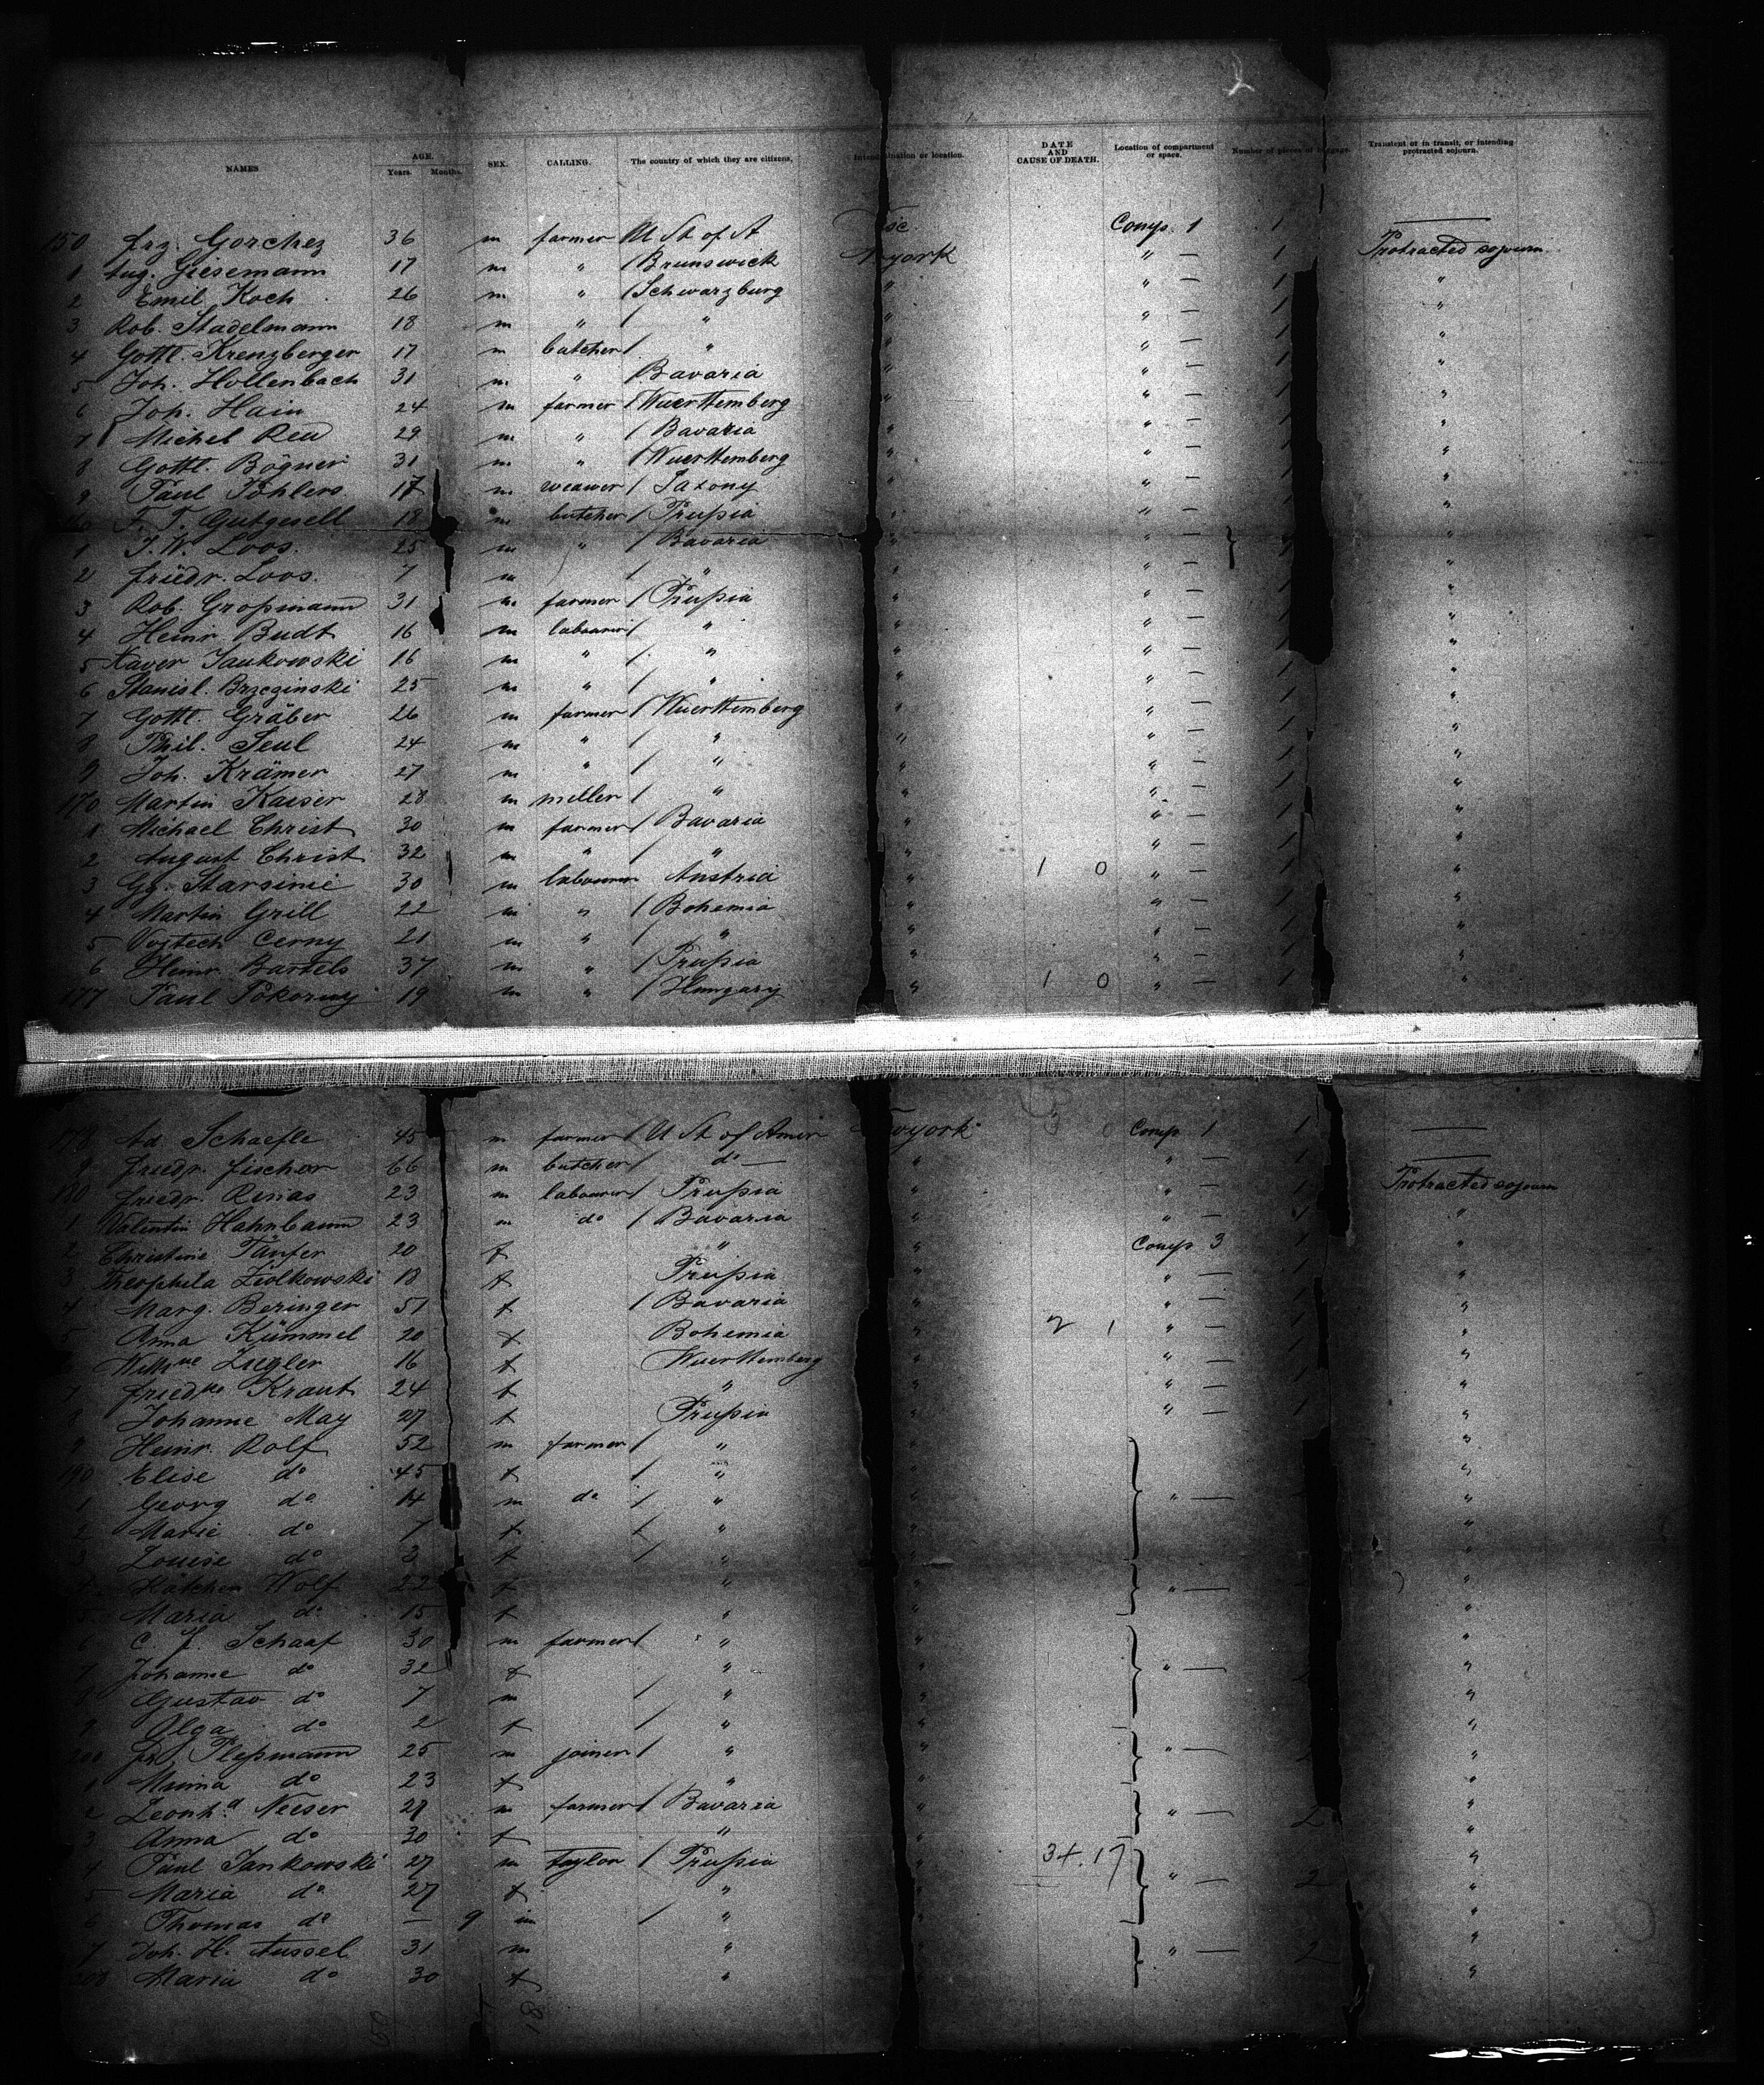 NAMES AGE. Years. Months. SEX. CALLING. The country of which they are citizens, Intend ination or location. DATE AND CAUSE OF DEATH. Location of compartment or space. Number of pieces of baggage. Transient or in transit, or intending protracted sojourn.
150 Frz. Gorchez 36 m farmer / U St of A Comp. 1 1 —
1 Aug. Giesemann 17 m " / Brunswick N york " — 1 Protracted sojourn
2 Emil Koch 26 m " / Schwarzburg " " — 1 "
3 Rob. Stadelmann 18 m " / " " " — 1 "
4 Gottl. Krenzberger 17 m butcher / " " " — 1 "
5 Joh. Hollenbach 31 m " / Bavaria " " — 1 "
6 Joh. Hain 24 m farmer / Wuerttemberg " " — 1 "
7 Michel 29 m " / Bavaria " " — 1 "
8 Gottl. Bögner 31 m " / Wuerttemberg " " — 1 "
9 Paul Pöhlers 17 m weawer / Saxony " " — 1 "
160 F. T. Gutgesell 18 m butcher / Prußia " " — 1 "
1 J. W. Loos. 25 m " / Bavaria " " — "
2 Friedr. Loos. 7 m / " " " — 1 "
3 Rob. Großmann 31 m farmer / Prußia " " — 1 "
4 Heinr. Budt 16 m labourer / " " " — 1 "
5 Xaver Jankowski 16 m " / " " " — 1 "
6 Stanisl. Brzezinski 25 m " / " " " — 1 "
7 Gottl. Gräber 26 m farmer / Wuerttemberg " " — 1 "
8 Phil. Seul 24 m " / " " " — 1 "
9 Joh. Krämer 27 m " / " " " — 1 "
170 Martin Kaiser 28 m miller / " " " — 1 "
1 Michael Christ 30 m farmer / Bavaria " " — 1 "
2 August Christ 32 m " / " " " — 1 "
3 Gg. Starsinie 30 m labourer Austria " 1 0 " — 1 "
4 Martin Grill 22 m " / Bohemia " " — 1 "
5 Vojtech Cerny 21 m " / " " " — 1 "
6 Heinr. Bartels 37 m " / Prußia " " — 1 "
177 Paul Pokorny 19 m " / Hungary " 1 0 " — 1 "
178 Ad. Schaefle 45 m farmer / U St of Amer wyork Comp 1 1 —
9 Friedr. Fischer 66 m butcher / do — " " — 1 —
180 Friedr. Rinas 23 m labourer / Prußia " " — 1 Protracted sojourn
1 Valentin Hahnbaum 23 m do / Bavaria " " — 1 "
2 Christine Täufer 20 f " " Comp 3 1 "
3 Theophila Ziolkowski 18 f Prußia " " — 1 "
4 Marg. Beringer 51 f / Bavaria " " — 1 "
5 Anna Kümmel 20 f Bohemia " 2 1 " — 1 "
Wilhne Zugler 16 f Wuerttemberg " " — 1 "
7 Friedke Kraut 24 f " " " — 1 "
8 Johanne May 27 f Prußia " " — 1 "
9 Heinr. Rolf 52 m farmer / " " "
190 Elise do 45 f / " " "
1 Georg do 14 m do / " " " — "
2 Marie do 7 f / " " "
3 Louise do 3 f / " " "
4 Kätchen Wolf 22 f " " " — "
5 Maria do 15 f " " "
6 C. F. Schaaf 30 m farmer / " " "
7 Johanne do 32 f " " " — "
8 Gustav do 7 m / " " "
9 Olga do 2 f / " " "
200 Fr. Pleßmann 25 m joiner / " " " — "
1 Minna do 23 f " " "
2 Leonhd Neeser 27 m farmer / Bavaria " " — 2 "
3 Anna do 30 f " " "
4 Paul Jankowski 27 m taylor / Prußia " 34.17 " — 2 "
5 Maria do 27 f " " "
6 Thomas do — 9 m / " " "
7 Joh. H. Aussel 31 m " " " — 2 "
208 Maria do 30 f " "